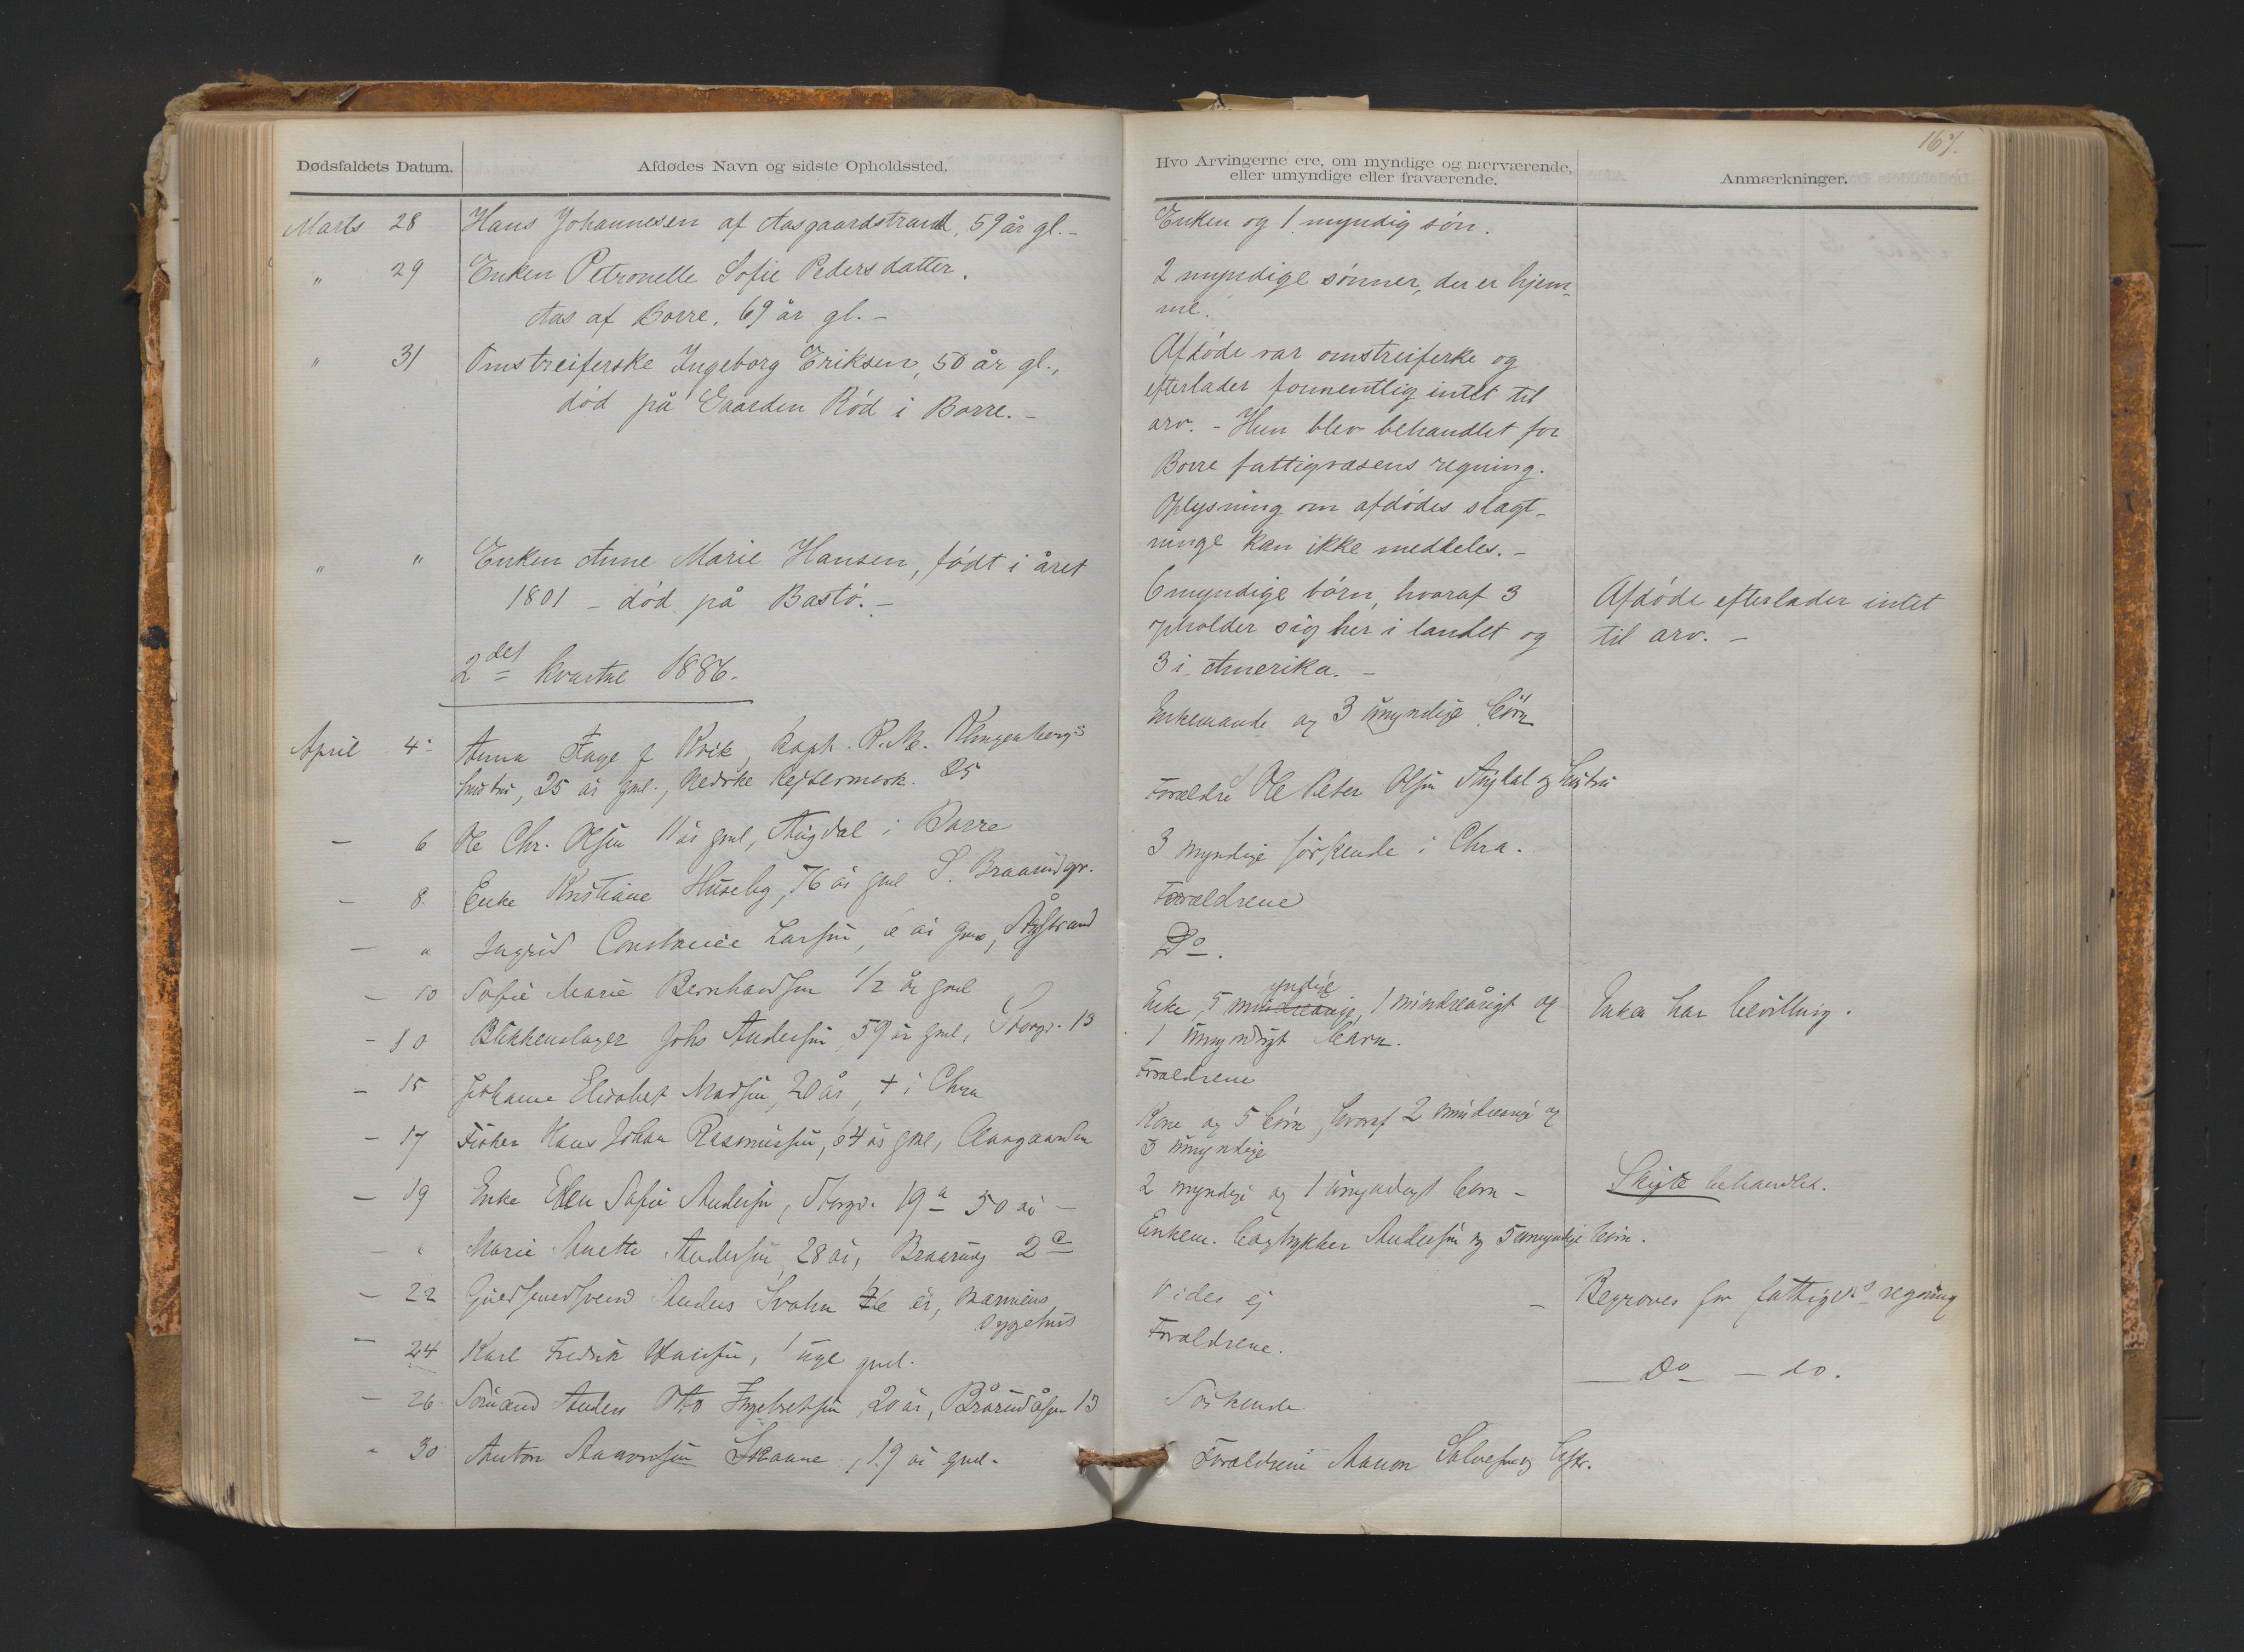 167.
Dødsfaldets Datum. Afdødes Navn og sidste Opholdssted.
Hvo Arvingerne ere, om myndige og nærværende, eller umyndige eller fraværende. Anmærkninger.
Marts 28 Hans Johannesen af Aasgaardstrand, 59 år gl. -
" 29 Enken Petronelle Sofie Pedersdatter.
Aas af Borre, 69 år gl. -
" 31 Omstreiferske Ingeborg Eriksen, 50 år gl.,
død på Gaarden Rød i Borre. -
" " Enken Anne Marie Hansen, født i året
1801 - død på Bastø. -
2det kvartal 1886.
April 4 Anna Faye f Kvik, Kapt. R. M. Klingenbergs
hustru, 25 år gml., Nedre Keisermark. 25
- 6 Ole Chr. Olsen 11 år gml, Augdal i Borre
- 8 Enke Kristiane Huseby, 76 år gml S. Braarudgr.
- " Ingrid Constance Larsen, år gml,
- 10 Sofie Marie Berntsen 1/2 år gml
- 10 Blikkenslager Johs Andersen, 59 år gml, Storgd. 13
- 15 Johanne Elisabet Madsen, 20 år, + i Chra
- 17 Fisker Hans Johan Rasmussen, 64 år gml, Aargaarden
- 19 Enke Ellen Sofie Andersen, Storgd. 19 a 50 år -
- " Marie Anette Andersen 28 år, Braarudg 2 c
- 22 Guldsmedsvend Anders Svahn år, Marinens
Sygehus
- 24 Karl Fredrik Hansen, 1 uge gml.
- 26 Sømand Anders Otto Ingebretsen, 20 år, Brårudåsen 13
- 30 Anton Aanonsen Skaane, 19 år gml.
Enken og 1 myndig søn.
2 myndige sønner, der er hjem-
me.
Afdøde var omstreiferke og
efterlader formentlig intet til
arv. - Hun blev behandlet for
Borre fattigvæsens regning.
Oplysning om afdødes slægt-
ninge kan ikke meddeles. -
6 myndige børn, hvoraf 3
opholder sig her i landet og
3 i Amerika. -
Enkemand og 3 umyndige børn
Forældre Ole Peter Olsen Augdal og hustru
3 myndige søskende i Chra.
Forældrene
Do.
Enke, 5 myndige, 1 mindreårigt og
1 umyndigt barn.
Forældrene
Kone og 5 børn, hvoraf 2 mindreårige og
3 umyndige
2 myndige og 1 umyndigt barn -
Enkem. bogtrykker Andersen og 5 umyndige børn.
Vides ej -
Forældrene.
Søskende
Forældrene Aanon Salvesen og hstr.
Afdøde efterlader intet
til arv. -
Enken har bevilling.
Skifte behandles.
Begraves for fattiges regning
- Do - do.